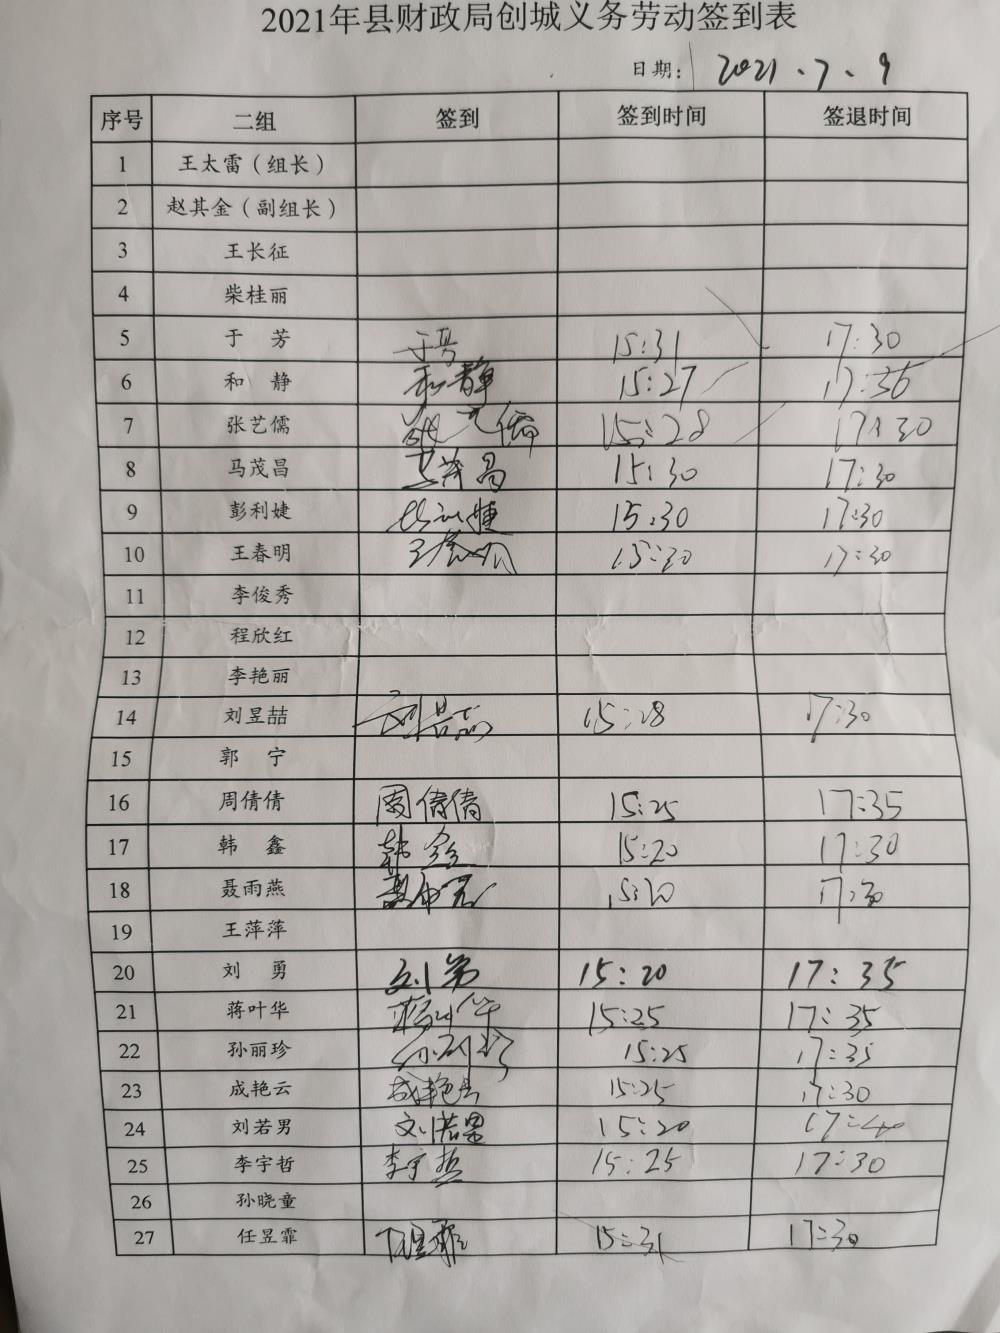 2021年县财政局创城义务劳动签到表
日期: 2021.7.9
序号 二组 签到 签到时间 签退时间
1 王太雷（组长）
2 赵其金（副组长）
3 王长征
4 柴桂丽
5 于 芳 于芳 15:31 17:30
6 和 静 和静 15:27 17:36
7 张艺儒 张艺儒 15:28 17:30
8 马茂昌 马茂昌 15:30 17:30
9 彭利婕 彭利婕 15:30 17:30
10 王春明 王春明 15:30 17:30
11 李俊秀
12 程欣红
13 李艳丽
14 刘昱喆 刘昱喆 15:28 17:30
15 郭 宁
16 周倩倩 周倩倩 15:25 17:35
17 韩 鑫 韩鑫 15:20 17:30
18 聂雨燕 聂雨燕 15:20 17:30
19 王萍萍
20 刘 勇 刘勇 15:20 17:35
21 蒋叶华 蒋叶华 15:25 17:35
22 孙丽珍 孙丽珍 15:25 17:35
23 成艳云 成艳云 15:25 17:30
24 刘若男 刘若男 15:20 17:40
25 李宇哲 李宇哲 15:25 17:30
26 孙晓童
27 任昱霏 任昱霏 15:31 17:30